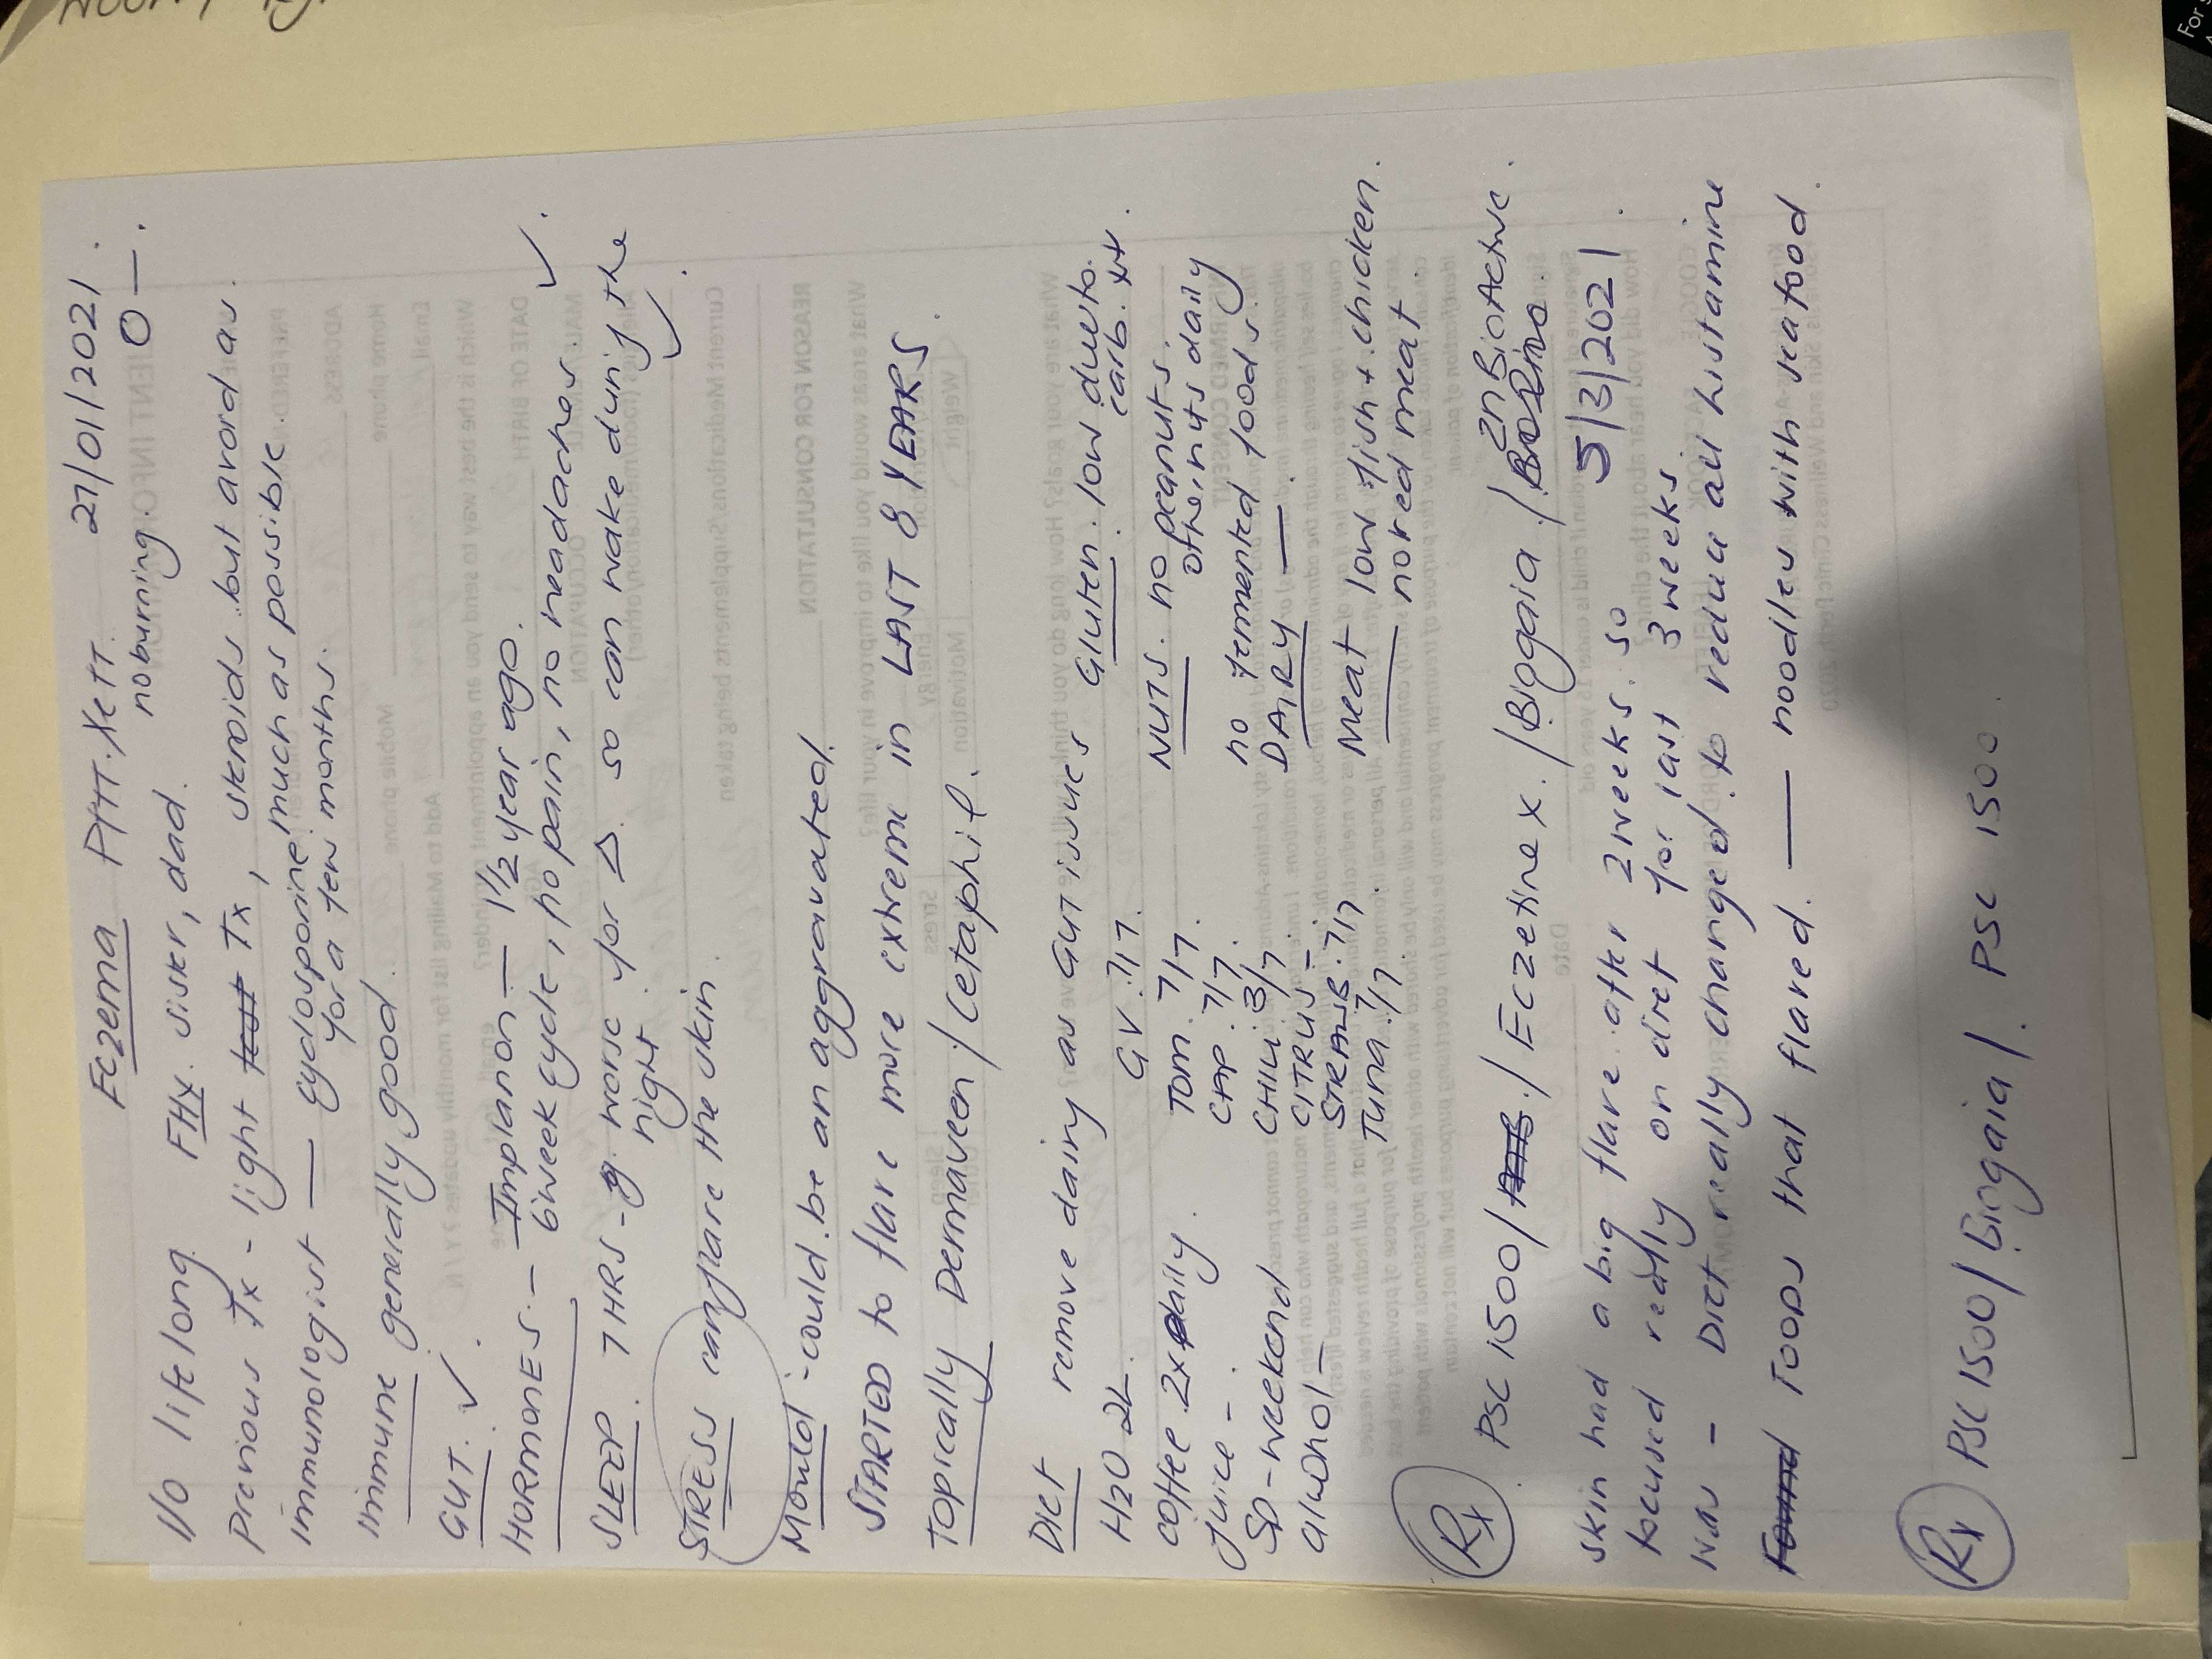 Eczema PMT. 27/01/2021.
1/0 lifelong. FHx. sister, dad. no burning. O —.
Previous Tx - light Tx, steroids but avoid as
much as possible.
Immunologist — cyclosporine
for a few months.
Immune generally good.
GUT. ✓.
HORMONES. — Implanon — 1 1/2 year ago.
6 week cycle, no pain, no headaches. ✓.
SLEEP. 7 HRS - worse for Δ. so can wake during the
night. ✓.
STRESS can flare the skin.
Mould - could be an aggravated.
STARTED to flare more extreme in LAST 8 YEARS.
TOPICALLY Dermaveen / Cetaphil.
Diet remove dairy as GUT issues
H2O 2L.
coffee 2x daily.
Juice -
SD - weekend
alcohol -
GV. 7/7.
TOM. 7/7.
CAP. 7/7.
CHILI. 3/7.
CITRUS -
STRAWB. 7/7.
TUNA. 7/7.
Gluten. low due to.
low carb.
NUTS. no peanuts.
other nuts daily
no fermented foods.
DAIRY —.
Meat low fish + chicken.
no red meat.
Rx PSC 1500 / Eczetrex. / Biogaia / Zn BioActive.
5/3/2021.
Skin had a big flare after 2 weeks. so
focused really on diet for last 3 weeks
Nas - Diet really changed to reduce all histamine
Foods that flared. — noodles with seafood.
Rx PSC 1500 / Biogaia /. PSC 1500.